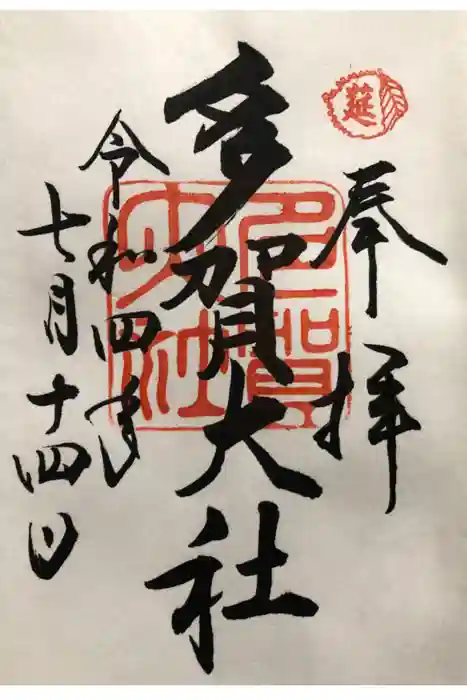 延
奉拝
多賀大社
多賀大社
令和四年
七月十四日